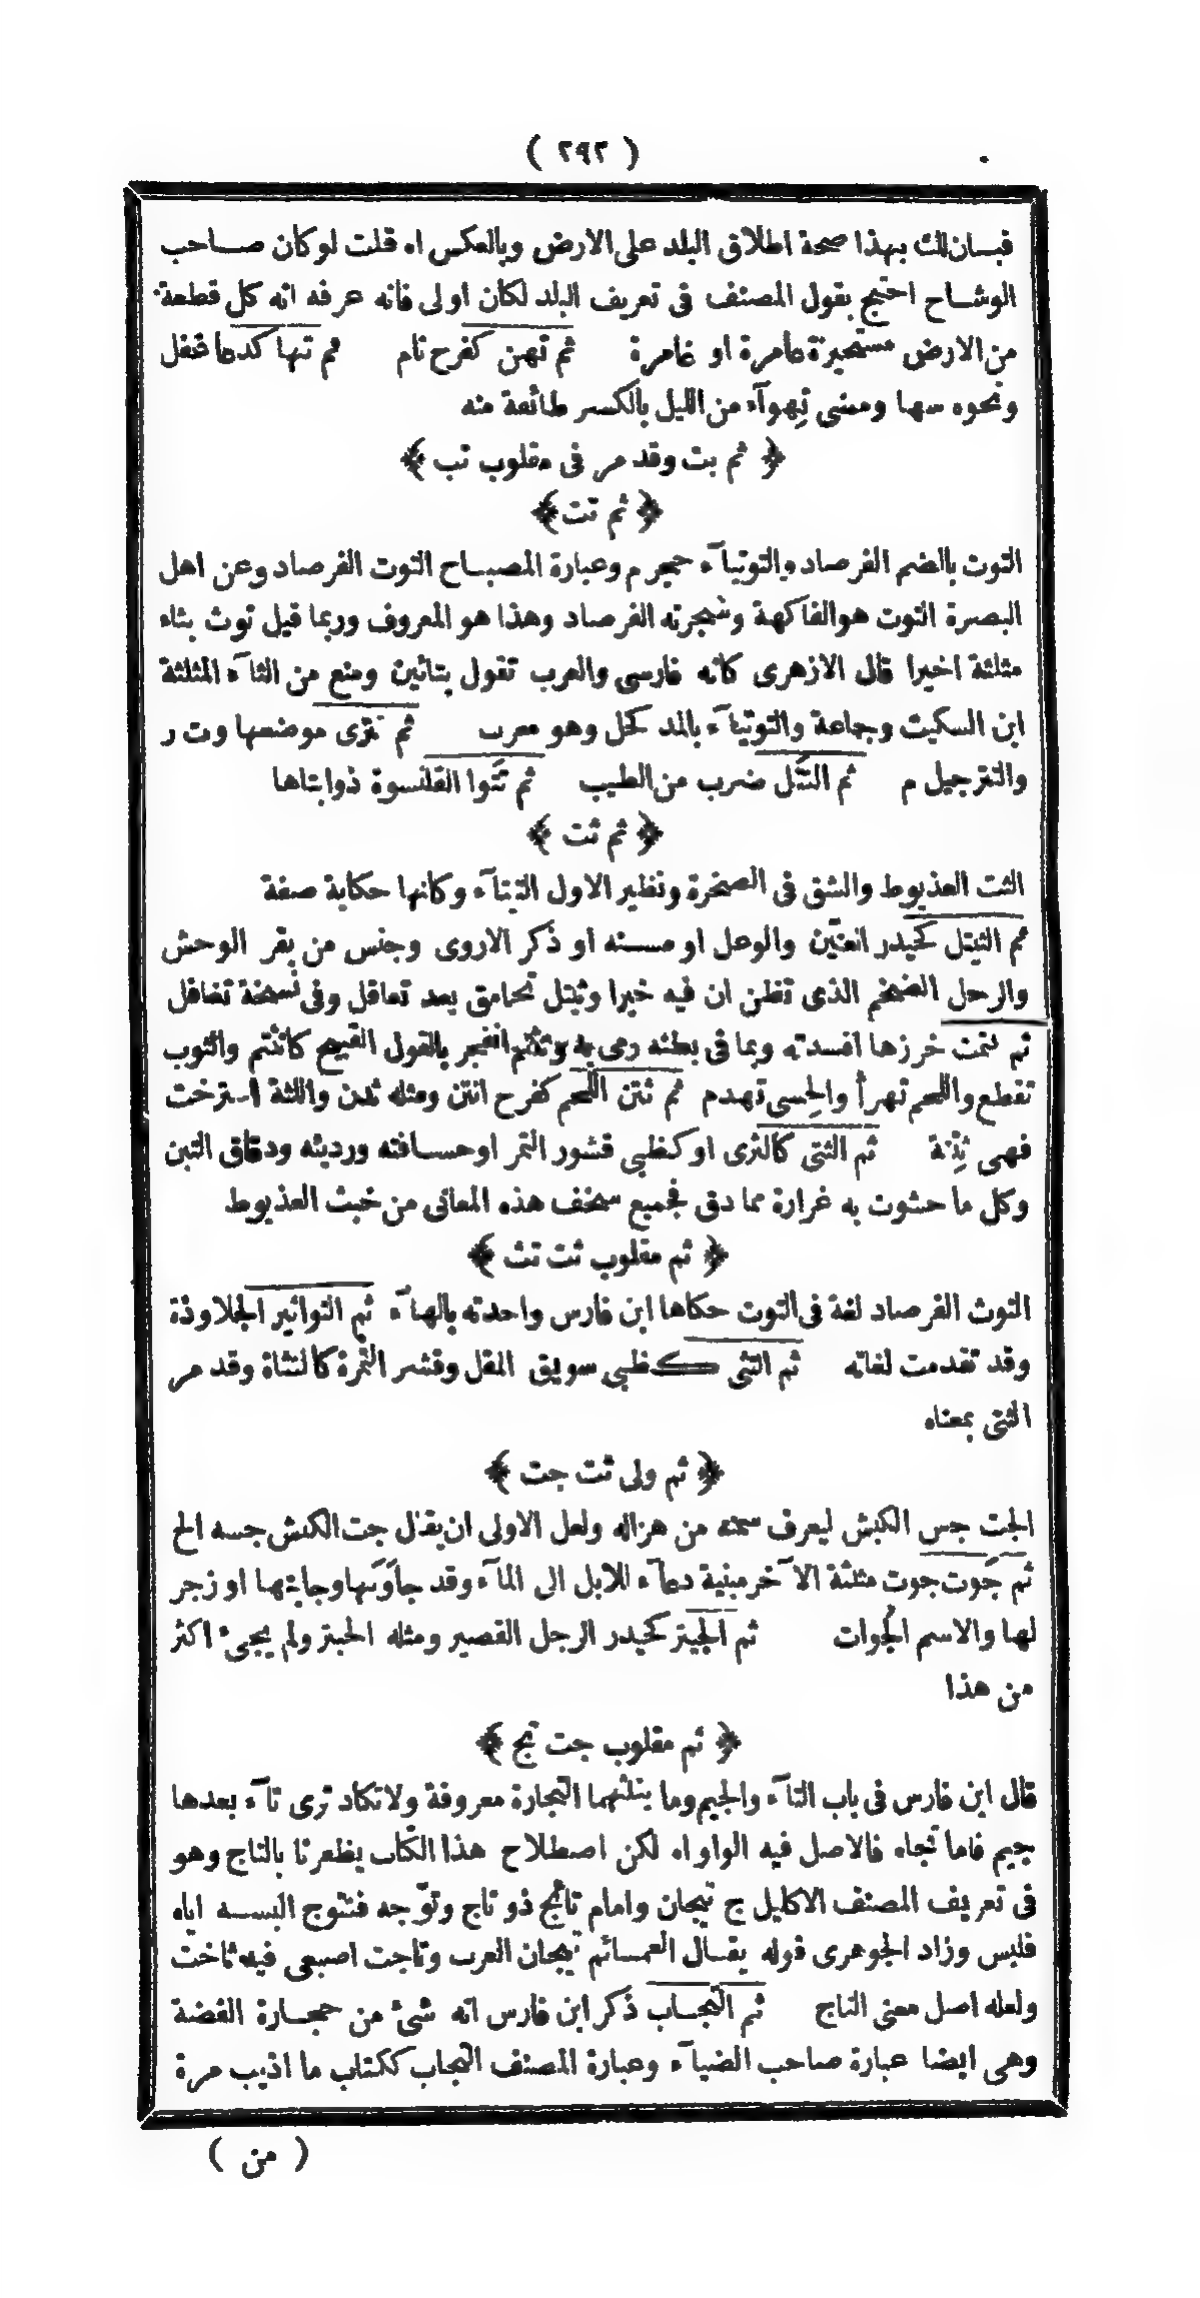 ( ٢٩٢ )
فبـان لك بهذا صحة اطلاق البلد على الارض وبالعكس اه قلت لو كان صـاحب
الوشـاح احتج بقول المصنف فى تعريف البلد لكان اولى فانه عرفه انه كل قطعة
من الارض مستحيزة عامرة او غامرة ثم تهن كفرح نام ثم تها كدعا غفل
ونحوه سها ومضى تِهوآء من الليل بالكسر طائفة منه
﴿ ثم بت وقد مر فى مقلوب تب ﴾
﴿ ثم تت ﴾
التوت بالضم الفرصاد والتوتيآء حجر م وعبارة المصبـاح التوت الفرصاد وعن اهل
البصرة التوت هو الفاكهة وشجرته الفرصاد وهذا هو المعروف وربما قيل توث بثاء
مثلثة اخيرا قال الازهرى كانه فارسى والعرب تقول بتائين ومنع من الثآء المثلثة
ابن السكيت وجماعة والتوتيآء بالمد كحل وهو معرب ثم تترى موضعها وت ر
والتترجيل م ثم التَتَل ضرب من الطيب ثم تَتَوا القلنسوة ذوابتاها
﴿ ثم ثت ﴾
الثت العذيوط والشق فى الصخرة ونظير الاول التيتآء وكانها حكاية صفة
ثم الثيتل كحيدر العنّين والوعل او مسنه او ذكر الاروى وجنس من بقر الوحش
والرجل الضخم الذى تظن ان فيه خيرا وثيتل تحامق بعد تعاقل وفى نسخة تغافل
ثم ثتمت خرزها افسدته وبما فى بطنه رمى به وتثتم انفجر بالقول القبيح كانثتم والثوب
تقطع واللحم تهرأ والحِسى تهدم ثم ثتن اللحم كفرح انتن ومثله ثدن واللثة استرخت
فهى ثتِنة ثم الثتى كالثرى او كظبى قشور التمر او حسـافته ورديئه ودقاق التبن
وكل ما حشوت به غرارة مما دق فجميع سخف هذه المعانى من خبث العذيوط
﴿ ثم مقلوب ثت تث ﴾
التوث الفرصاد لغة فى التوت حكاها ابن فارس واحدته بالهآء ثم التواثير الجلاوذة
وقد تقدمت لغاته ثم التثى كظبى سويق المقل وقشر التمرة كالتثاة وقد مر
الثتى بمعناه
﴿ ثم ولى ثت جت ﴾
الجت جس الكبش ليعرف سمنه من هزاله ولعل الاولى ان يقال جت الكبش جسه الخ
ثم جَوت جوت مثلثة الآخر مبنية دعآء للابل الى المآء وقد جاوَتَها وجايتها او زجر
لها والاسم الجُوات ثم الجيتر كحيدر الرجل القصير ومثله الحبتر ولم يجئ اكثر
من هذا
﴿ ثم مقلوب جت تج ﴾
قال ابن فارس فى باب التآء والجيم وما يثلثهما التجارة معروفة ولا تكاد ترى تآء بعدها
جيم فاما تجاه فالاصل فيه الواو اه لكن اصطلاح هذا الكتاب يظفرنا بالتاج وهو
فى تعريف المصنف الاكليل ج تيجان وامام تائج ذو تاج وتوّجه فتتوج البسـه اياه
فلبس وزاد الجوهرى قوله يقـال العمـائم تيجان العرب وتاجت اصبعى فيه ثاخت
ولعله اصل معنى التاج ثم التجـاب ذكر ابن فارس انه شئ من حجـارة الفضة
وهى ايضا عبارة صاحب الضيآء وعبارة المصنف التجاب ككتاب ما اذيب مرة
( من )